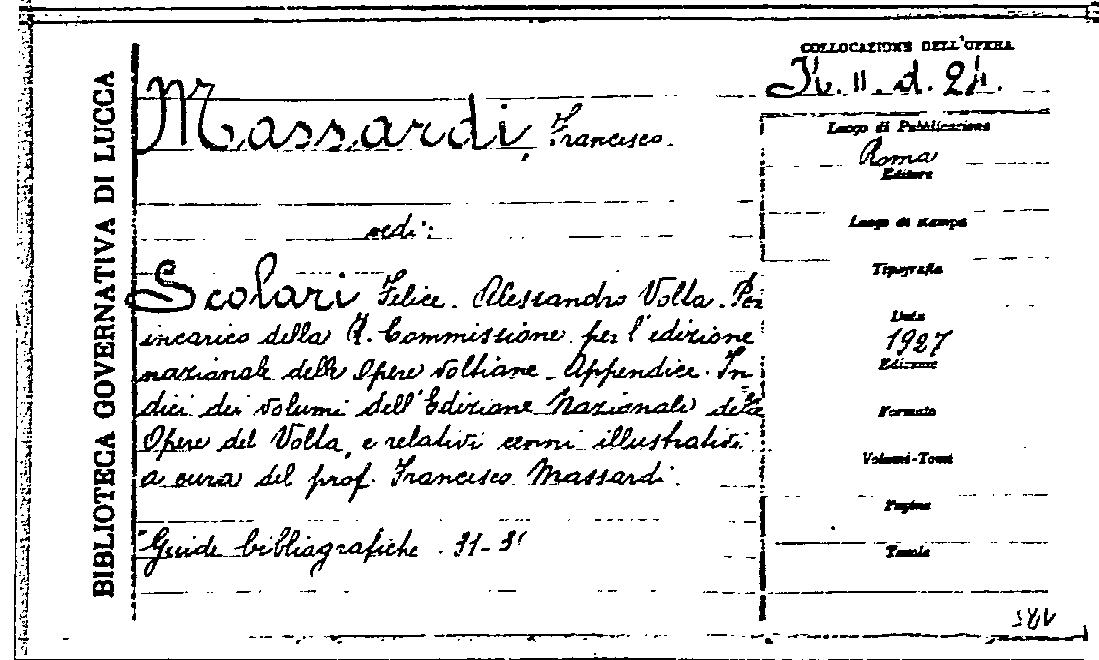 BIBLIOTECA GOVERNATIVA DI LUCCA
Massardi, Francesco.
vedi:
Scolari Felice. Alessandro Volta. Per
incarico della R. Commissione per l'edizione
nazionale delle Opere voltiane. Appendice. In
dici dei volumi dell'Edizione Nazionale delle
Opere del Volta, e relativi cenni illustrativi
a cura del prof. Francesco Massardi.
Guide bibliografiche . 31-31
COLLOCAZIONE DELL'OPERA
K. II. d. 24.
Luogo di Pubblicazione
Roma
Editore
Luogo di stampa
Tipografia
Data
1927
Edizione
Formato
Volumi-Tomi
Pagine
Tavole